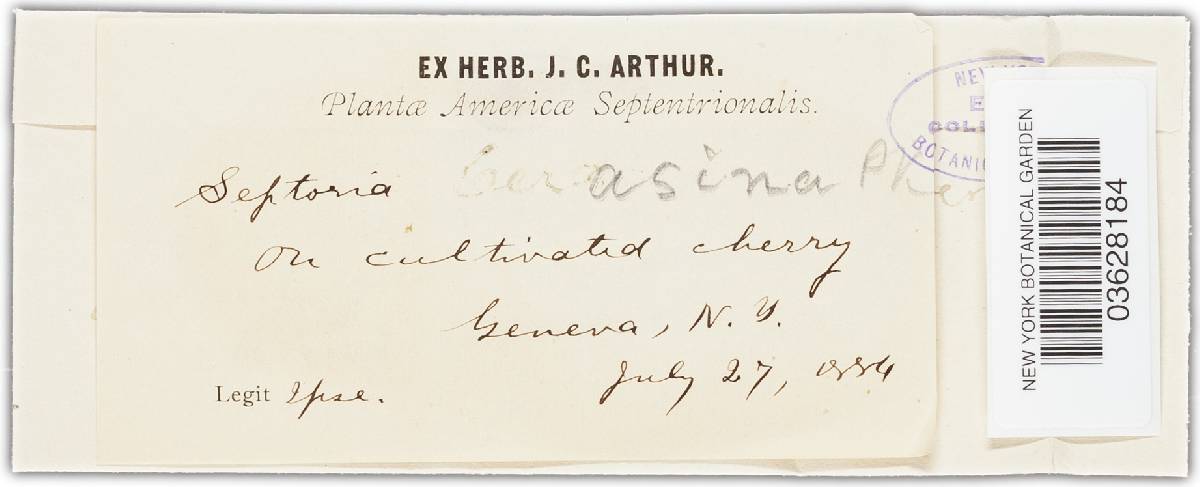 EX HERB. J. C. ARTHUR.
Plantæ Americæ Septentrionalis.
Septoria Cerasina
On cultivated cherry
Geneva, N. Y.
July 27, 1884
Legit Ipse.
BOTANIC
NEW YORK BOTANICAL GARDEN
03628184